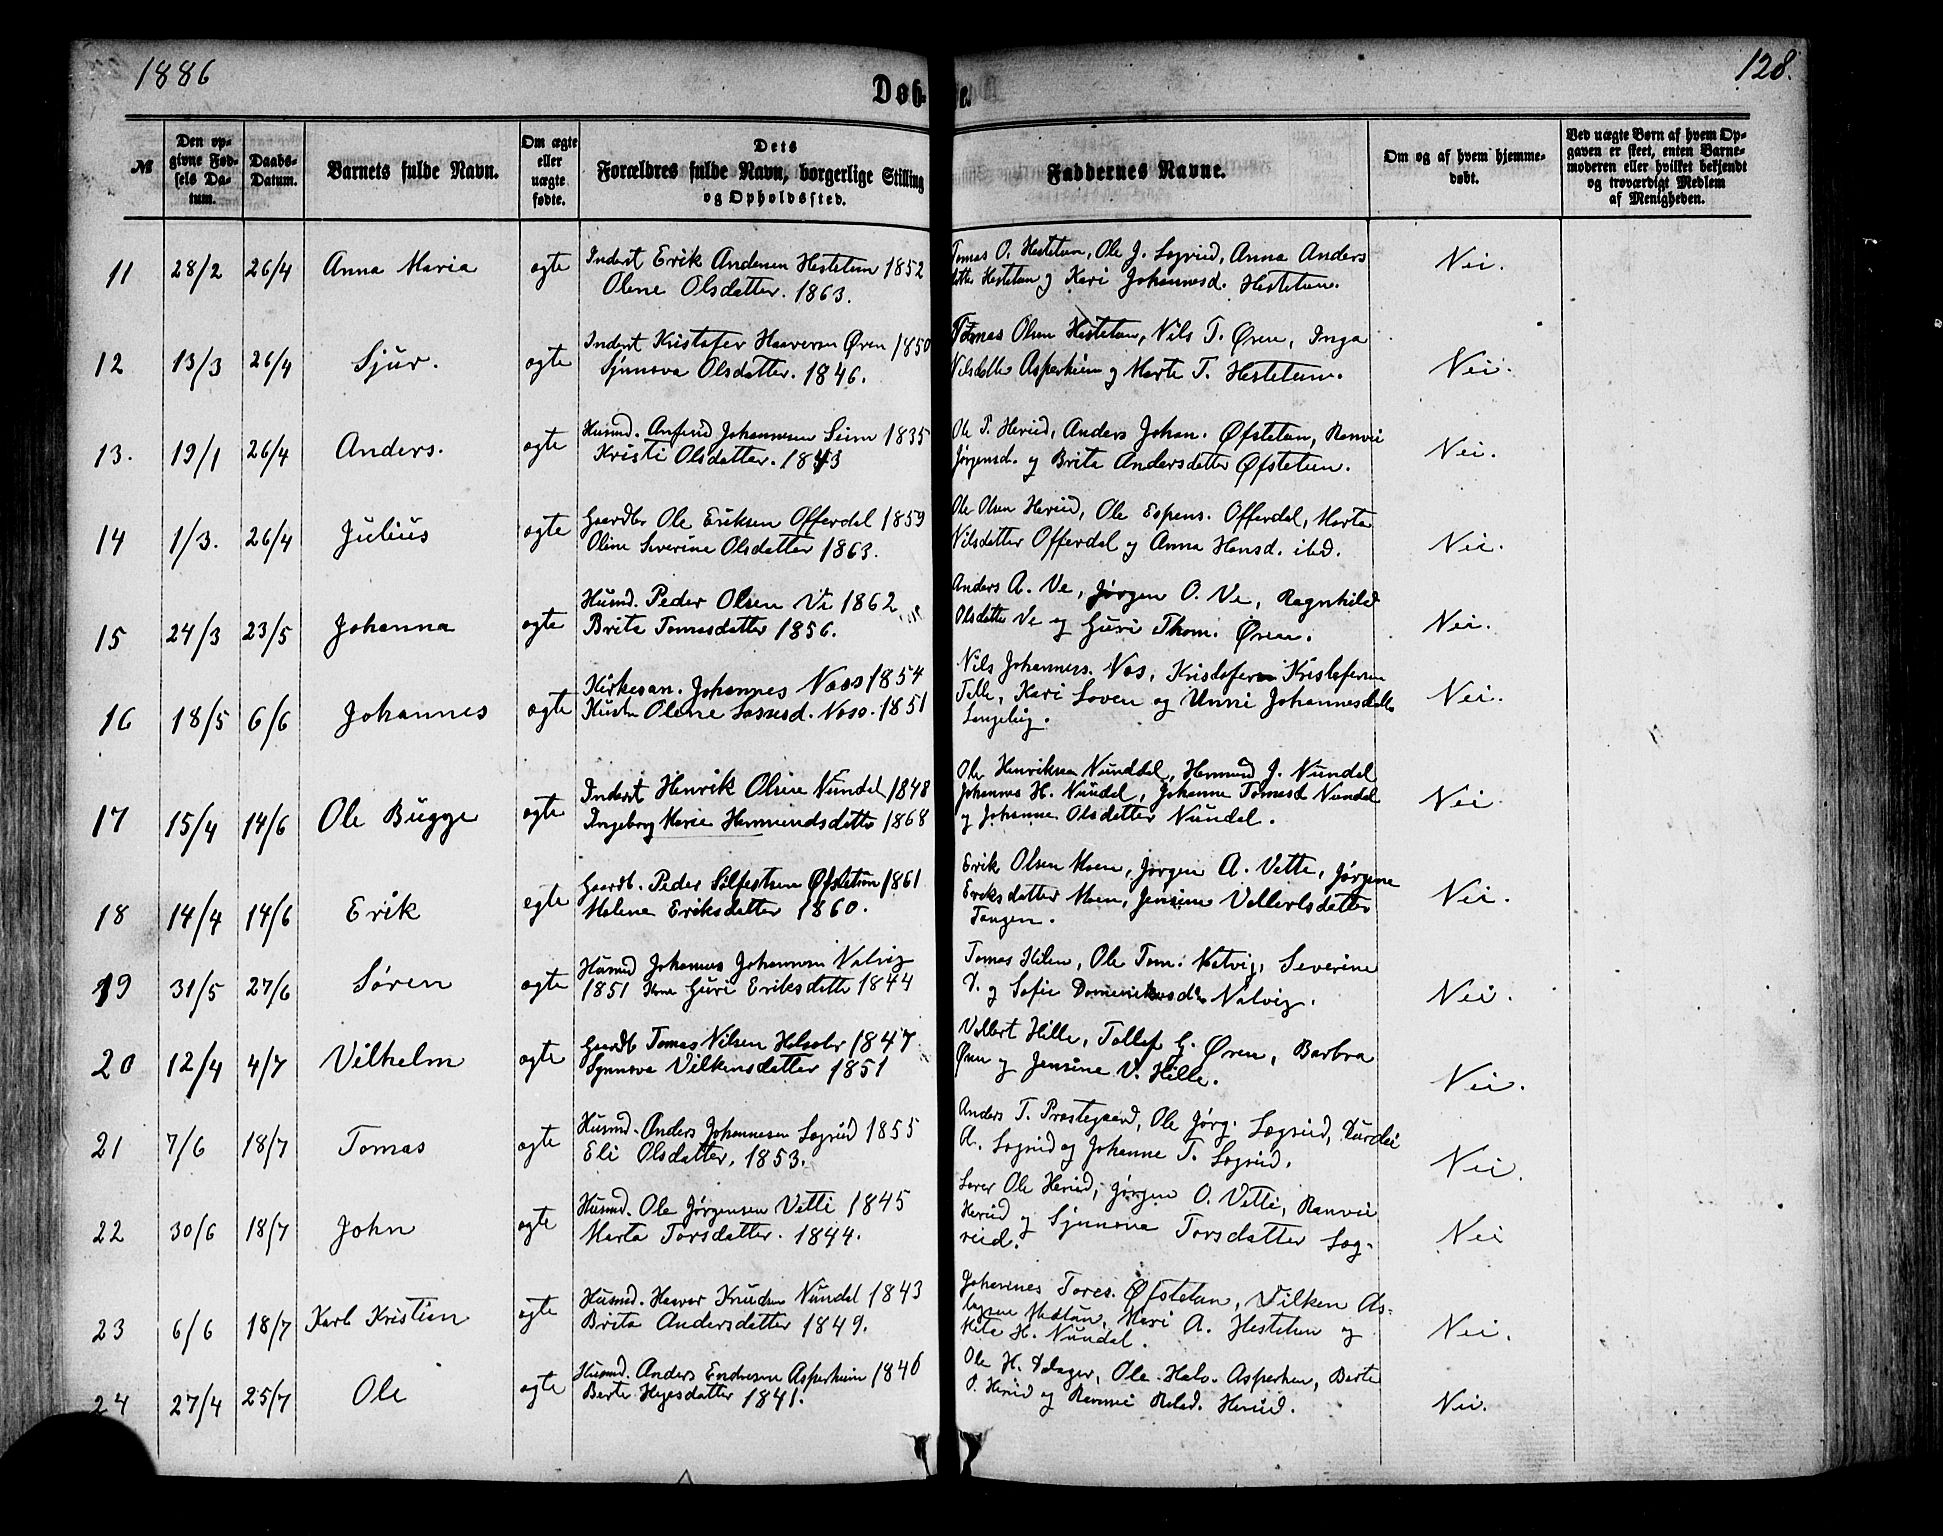 1886
128.
Døb-
e.
№
Den op-
givne Fød-
sels Da-
tum.
Daabs-
Datum.
Barnets fulde Navn.
Om ægte
eller
uægte
fødte.
Dets
Forældres fulde Navn, borgerlige Stilling
og Opholdssted.
Faddernes Navne.
Om og af hvem hjemme-
døbt.
Ved uægte Børn af hvem Op-
gaven er skeet, enten Barne-
moderen eller hvilket bekjendt
og troværdigt Medlem
af Menigheden.
11 28/2 26/4 Anna Maria ægte
Inderst Erik Andersen Hestetun 1852
Olene Olsdatter. 1863.
Tomas O. Hestetun, Ole J. Sogrud, Anna Anders
datter Hestetun og Kari Johannesd. Hestetun.
Nei.
12 13/3 26/4 Sjur. ægte
Inderst Kristofer Haaversen Øren 1850
Synneva Olsdatter. 1846.
Tomas Olsen Hestetun, Nils T. Øren, Inga
Nilsdatter Asperheim og Marte T. Hestetun.
Nei.
13. 19/1 26/4 Anders. ægte
Husmd. Anfind Johannesen Seim 1835
Kristi Olsdatter. 1843
Ole P. Herud, Anders Johan. Øfstetun, Ranvei
Jørgensd. og Brita Andersdatter Øfstetun.
Nei.
14 1/3. 26/4 Julius ægte
Gaardbr Ole Eriksen Offerdal 1859
Oline Severine Olsdatter 1863.
Ole Olsen Herud, Ole Espens. Offerdal, Marta
Nilsdatter Offerdal og Anna Hansd. ibd.
Nei.
15 24/3 23/5 Johanna ægte
Husmd. Peder Olsen Ve 1862
Brita Tomasdatter 1856.
Anders A. Ve, Jørgen O. Ve, Ragnhild
Olsdatter Ve og Guri Thom. Øren.
Nei.
16 18/5 6/6 Johannes ægte
Kirkesan. Johannes Naas 1854
Kustr Olene Lassesd. Naas. 1851
Nils Johanness. Nos, Kristofer Kristofersen
Telle, Kari Loven og Unni Johannesdatter
Nei.
17 15/4 14/6 Ole Bugge ægte
Inderst Henrik Olsen Nundal 1848
Ingeborg Marie Hermundsdatter 1868
Ole Henriksen Nundal, Hermund J. Nundal
Johannes H. Nundal, Johanne Tomasd Nundal
og Johanne Olsdatter Nundal.
Nei.
18 14/4 14/6 Erik ægte
Gaardb. Peder Sølfestsen Øfstetun 1861
Malena Eriksdatter 1860.
Erik Olsen Moen, Jørgen A. Vette, Jørgine
Eriksdatter Moen, Jensine Vellertsdatter
Tangen.
Nei.
19 31/5 27/6 Søren ægte
Husmd Johannes Johannesen Natvig
1851 Kone Guri Eriksdatter 1844
Tomas Hilen, Ole Tom. Natvig, Severine
D. og Sofie Dominikusdtr Natvig.
Nei.
20 12/4 4/7 Vilhelm ægte
Gaardb Tomas Nilsen Halsabr 1847
Synneva Vilkensdatter 1851
Vellert Hille, Tollef G. Øren, Barbra
Øren og Jensine V. Hille.
Nei.
21 7/6 18/7 Tomas ægte
Husmd. Anders Johannesen Sogrud 1855
Eli Olsdatter, 1853.
Anders T. Prestegaard, Ole Jørg. Sogrud, Durdei
A. Sogrud og Johanne T. Sogrud.
Nei.
22 30/6 18/7 John ægte
Husmd. Ole Jørgensen Vetti 1845
Marta Torsdatter. 1844.
Ole Herud, Jørgen O. Vetti, Ranvei
Herud og Synneva Torsdatter Sog-
rud.
Nei
23 6/6 18/7 Karl Kristian ægte
Husmd. Haavar Knudsen Nundal 1843
Brita Andersdatter 1849.
Johannes Tores. Øfstetun, Vilken As-
Mari A. Hestetun og
H. Nundal.
Nei.
24 27/4 25/7 Ole ægte
Husmd. Anders Endresen Asperheim 1846
Berte Hegesdatter 1841.
Ole H. Dalager, Ole Halv. Asperheim, Berte
O. Herud og Ranvei Herud.
Nei.